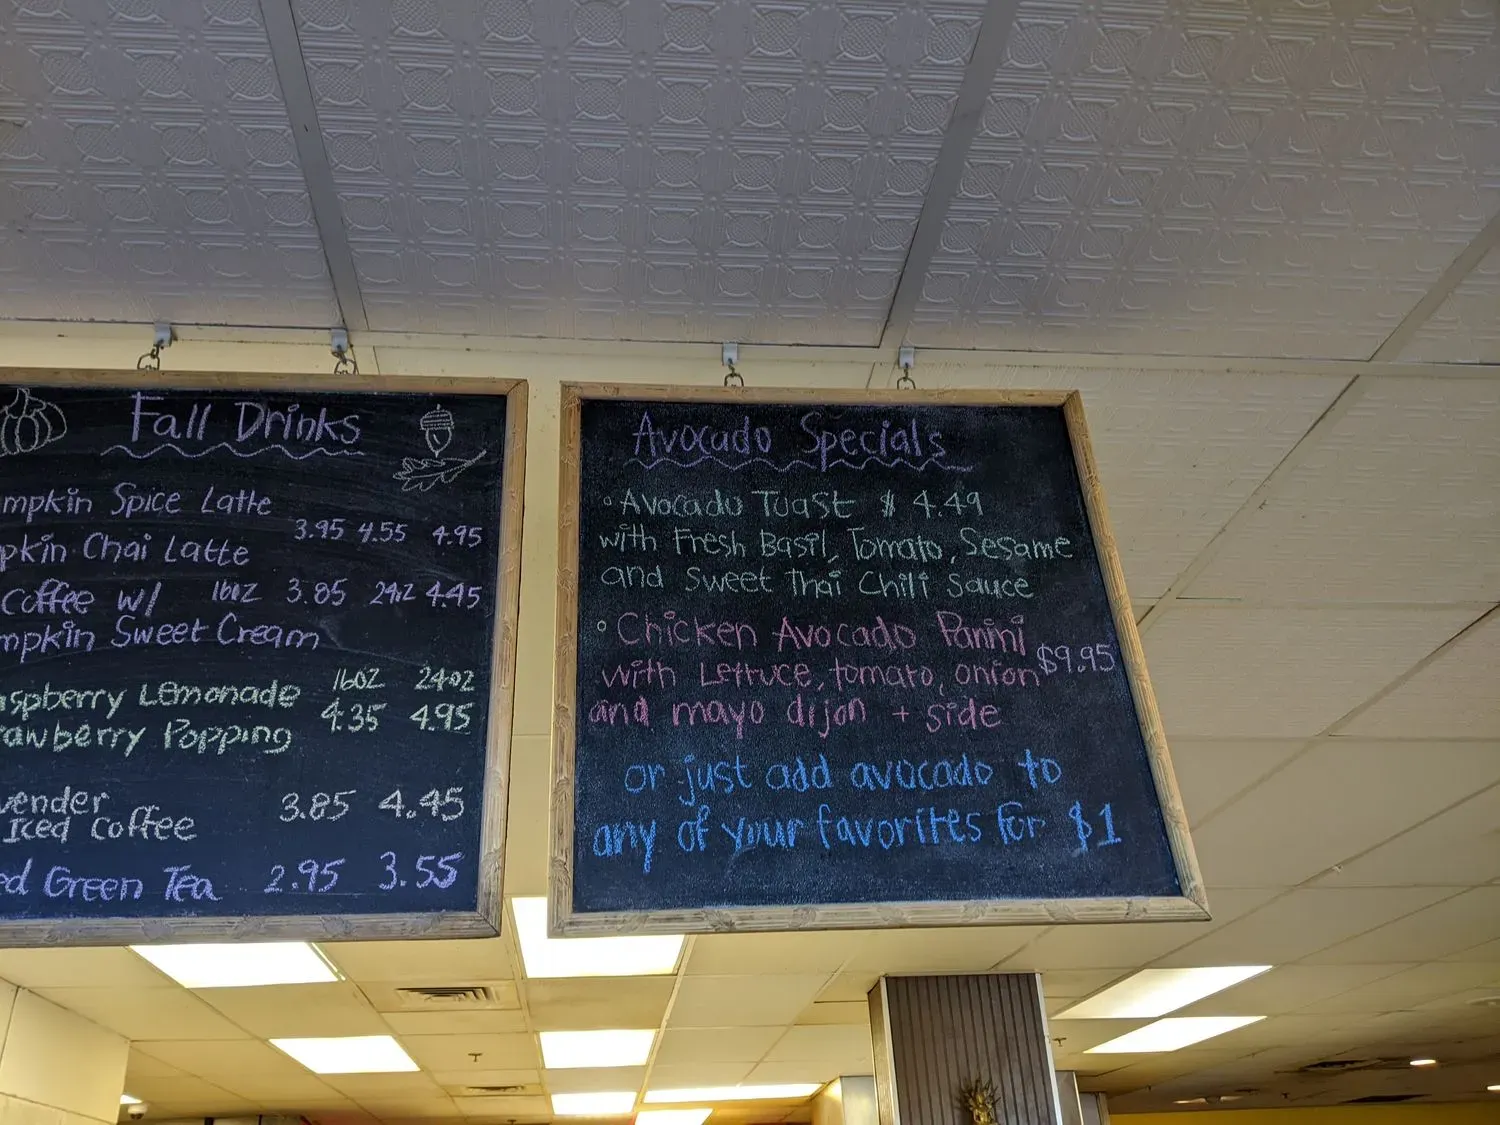 Fall Drinks
mpkin Spice Latte
3.95 4.55 4.95
pkin Chai Latte
Coffee w/ 16oz 3.85 24oz 4.45
mpkin Sweet Cream
16oz 24oz
aspberry Lemonade 4.35 4.95
rawberry Popping
vender 3.85 4.45
Iced Coffee
ed Green Tea 2.95 3.55
Avocado Specials
Avocado Toast $ 4.49
with Fresh Basil, Tomato, Sesame
and Sweet Thai Chili Sauce
Chicken Avocado Panini
with Lettuce, tomato, onion $9.95
and mayo dijon + side
or just add avocado to
any of your favorites for $1